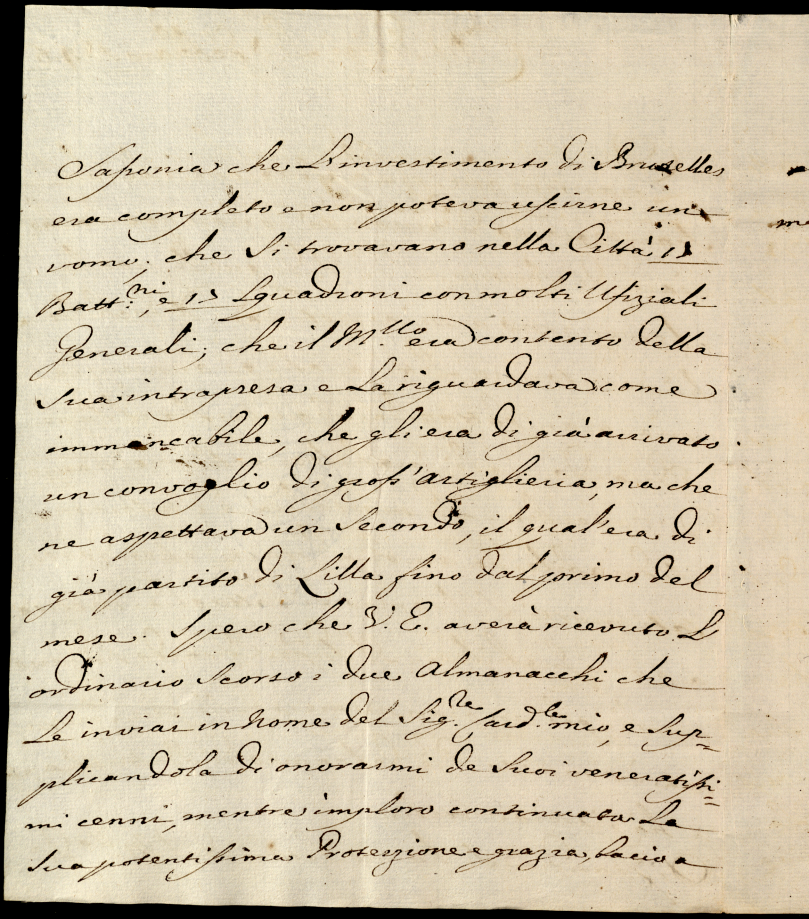 Saponia che L'investimento di Bruselles
era completo e non poteva uscirne un
uomo, che Si trovavano nella Città 15
Batt:ni, e 15 Squadroni con molti Ufiziali
Generali; che il M.llo era contento della
Sua intrapresa e La riguardava come
immancabile, che gli era di già arrivato
un convoglio di gross' Artiglieria, ma che
ne aspettava un Secondo, il qual'era di
già partito di Lilla fino dal primo del
mese. Spero che V. E. averà ricevuto L'
ordinario Scorso i due Almanacchi che
Le inviai in Nome del Sig.re Card.le mio, e Sup=
plicandola di onorarmi de Suoi veneratissi=
mi cenni, mentre imploro continuata La
Sua potentissima Protezzione e grazia, bacio a